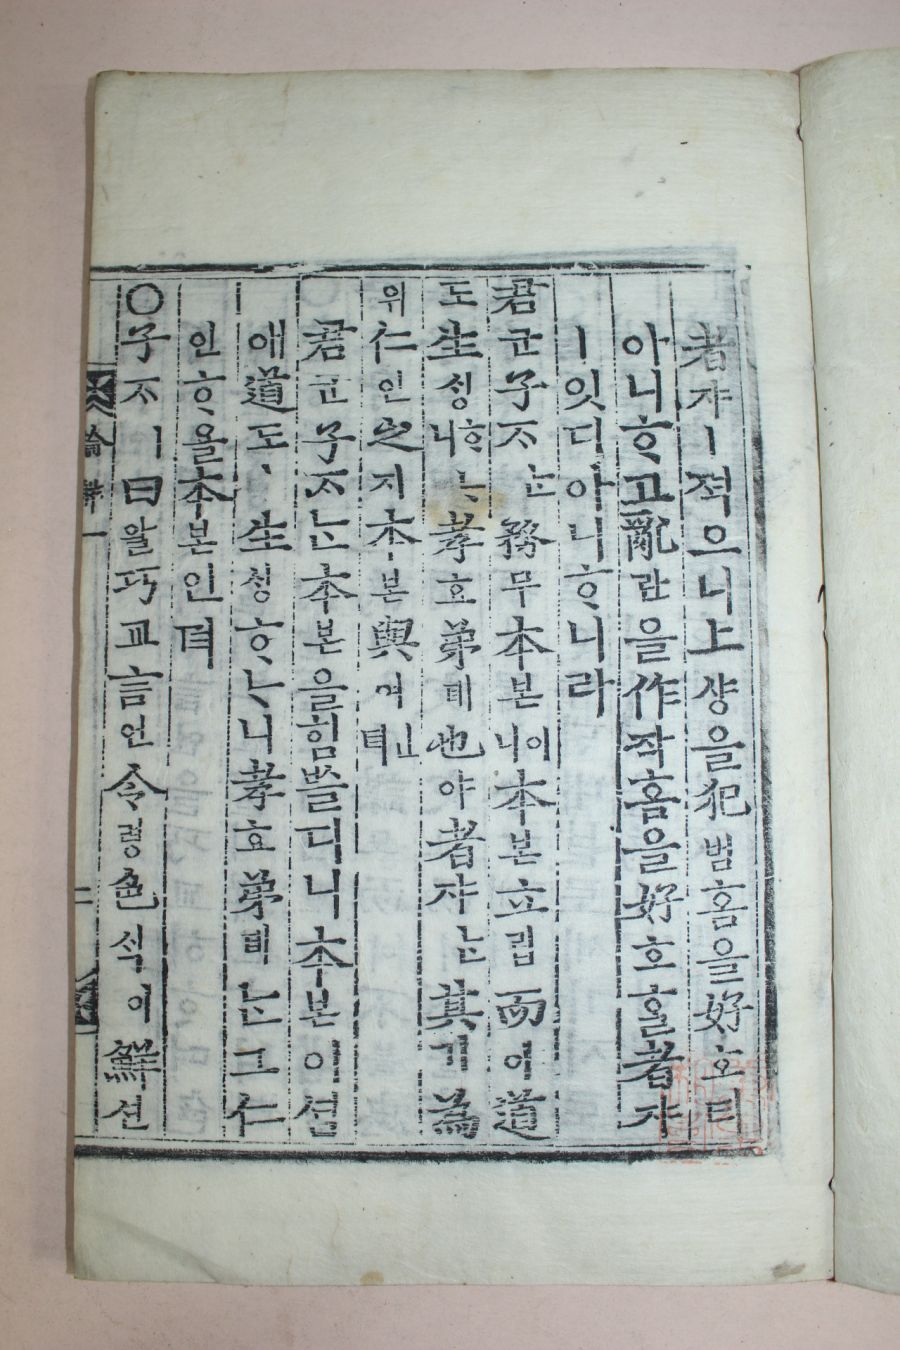 者쟈ㅣ적으니上샹을犯범홈을好호티
아니ᄒᆞ고亂란을作작홈을好호ᄒᆞᆯ者쟈
ㅣ잇디아니ᄒᆞ니라
君군子ᄌᆞᄂᆞᆫ務무本본이니本본立립而이道
도生ᄉᆡᆼᄒᆞᄂᆞ니孝효弟뎨也야者쟈ᄂᆞᆫ其기為
위仁인之지本본與여ᅟᅵᆫ뎌
君군子ᄌᆞᄂᆞᆫ本본을힘ᄡᅳᆯ디니本본이셤
애道도ㅣ生ᄉᆡᆼᄒᆞᄂᆞ니孝효弟뎨ᄂᆞᆫ그仁
인ᄒᆞ욜本본인뎌
○子ᄌᆞㅣ曰왈巧교言언令령色ᄉᆡᆨ이鮮션